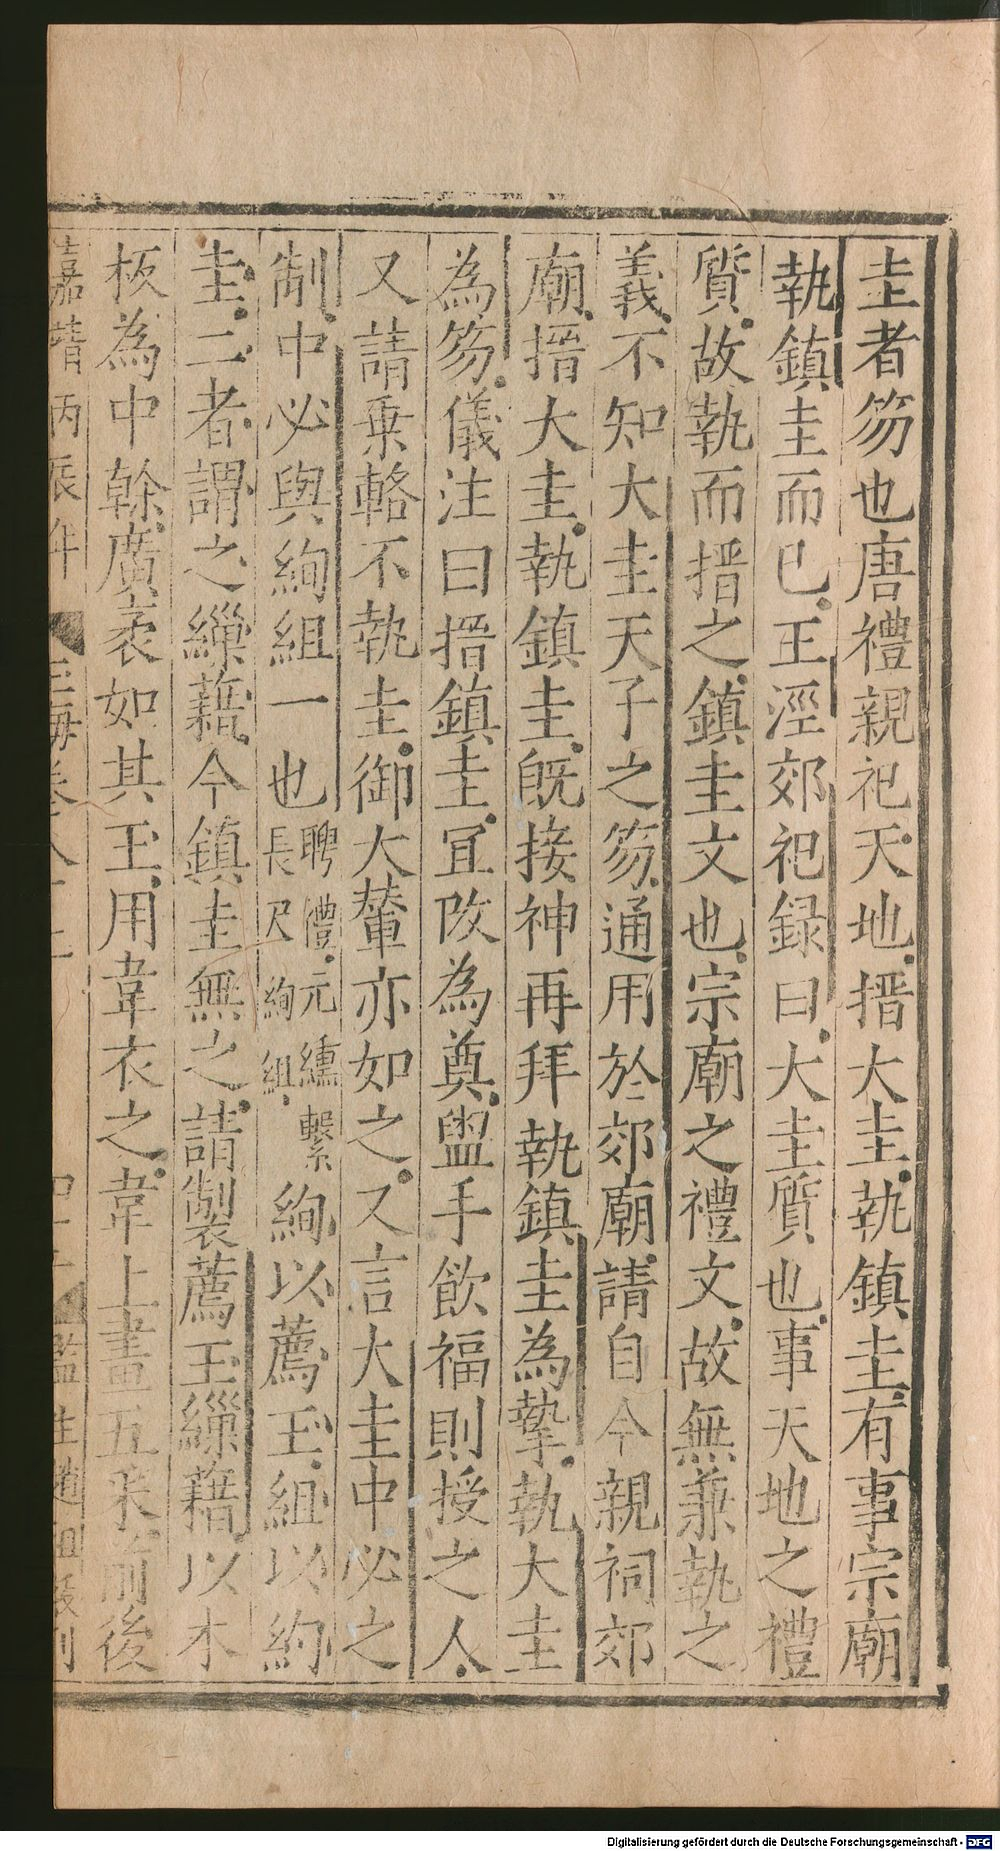 圭者笏也唐禮親祀天地搢大圭執鎮圭有事宗廟
執鎮圭而已王涇郊祀録曰大圭質也事天地之禮
質故執而搢之鎮圭文也宗廟之禮文故無兼執之
義不知大圭天子之笏通用於郊廟請自今親祠郊
廟搢大圭執鎮圭旣接神再拜執鎮圭為摯執大圭
為笏儀注曰搢鎮圭冝改為奠盥手飲福則授之人
又請乗輅不執圭御大輦亦如之又言大圭中必之
制中必與絢組一也聘禮元纁繫長尺絢組絢以薦玉組以約
圭二者謂之繅藉今鎮圭無之請製薦玉繅藉以木
板為中榦廣袤如其玉用韋衣之韋上畫五采前後
嘉靖丙辰年
監生趙
刊
Digitalisierung gefördert durch die Deutsche Forschungsgemeinschaft - DFG